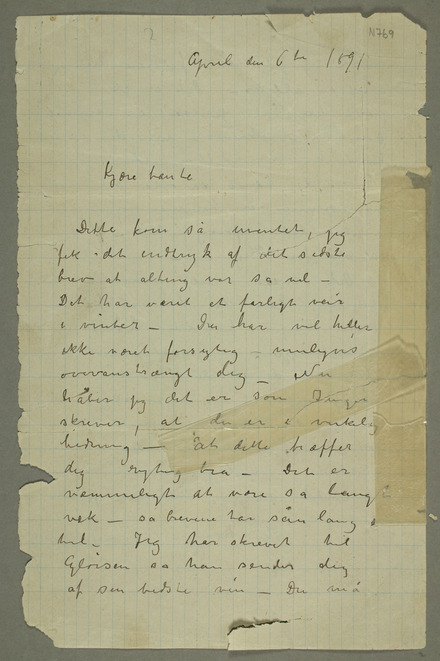 N769
April den 6te 1891
Kjære tante
Dette kom så uventet, jeg
fik det indtryk af dit sidste
brev at alting var så vel –
Det har været et farligt veir
i vinter – Du har vel heller
ikke været forsigtig – muligvis
overanstrængt dig – Nu
håber jeg det er som Inger
skriver, at du er i virkelig
bedring – At dette træffer
dig rigtig bra – Det er
væmmeligt at være så langt
væk – så brevene har sån lang
tid – Jeg har skrevet til
Gløisen så han sender dig
af sin bedste vin – Du må